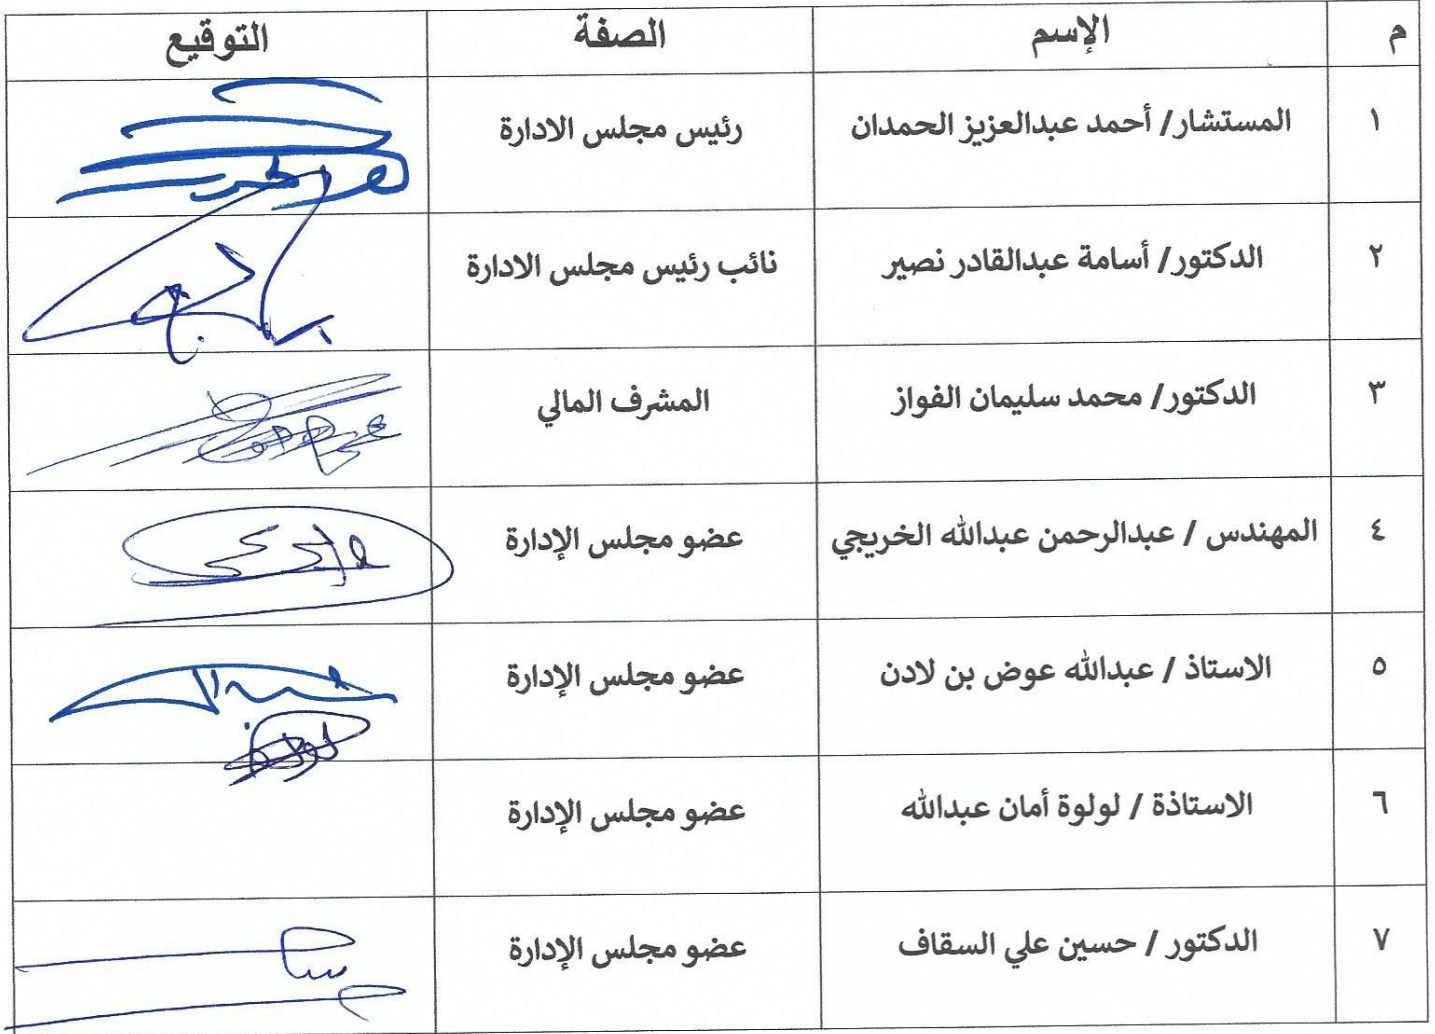 م الإسم الصفة التوقيع
١ المستشار/ أحمد عبدالعزيز الحمدان رئيس مجلس الادارة
٢ الدكتور/ أسامة عبدالقادر نصير نائب رئيس مجلس الادارة
٣ الدكتور/ محمد سليمان الفواز المشرف المالي
٤ المهندس / عبدالرحمن عبدالله الخريجي عضو مجلس الإدارة
٥ الاستاذ / عبدالله عوض بن لادن عضو مجلس الإدارة
٦ الاستاذة / لولوة أمان عبدالله عضو مجلس الإدارة
٧ الدكتور / حسين علي السقاف عضو مجلس الإدارة